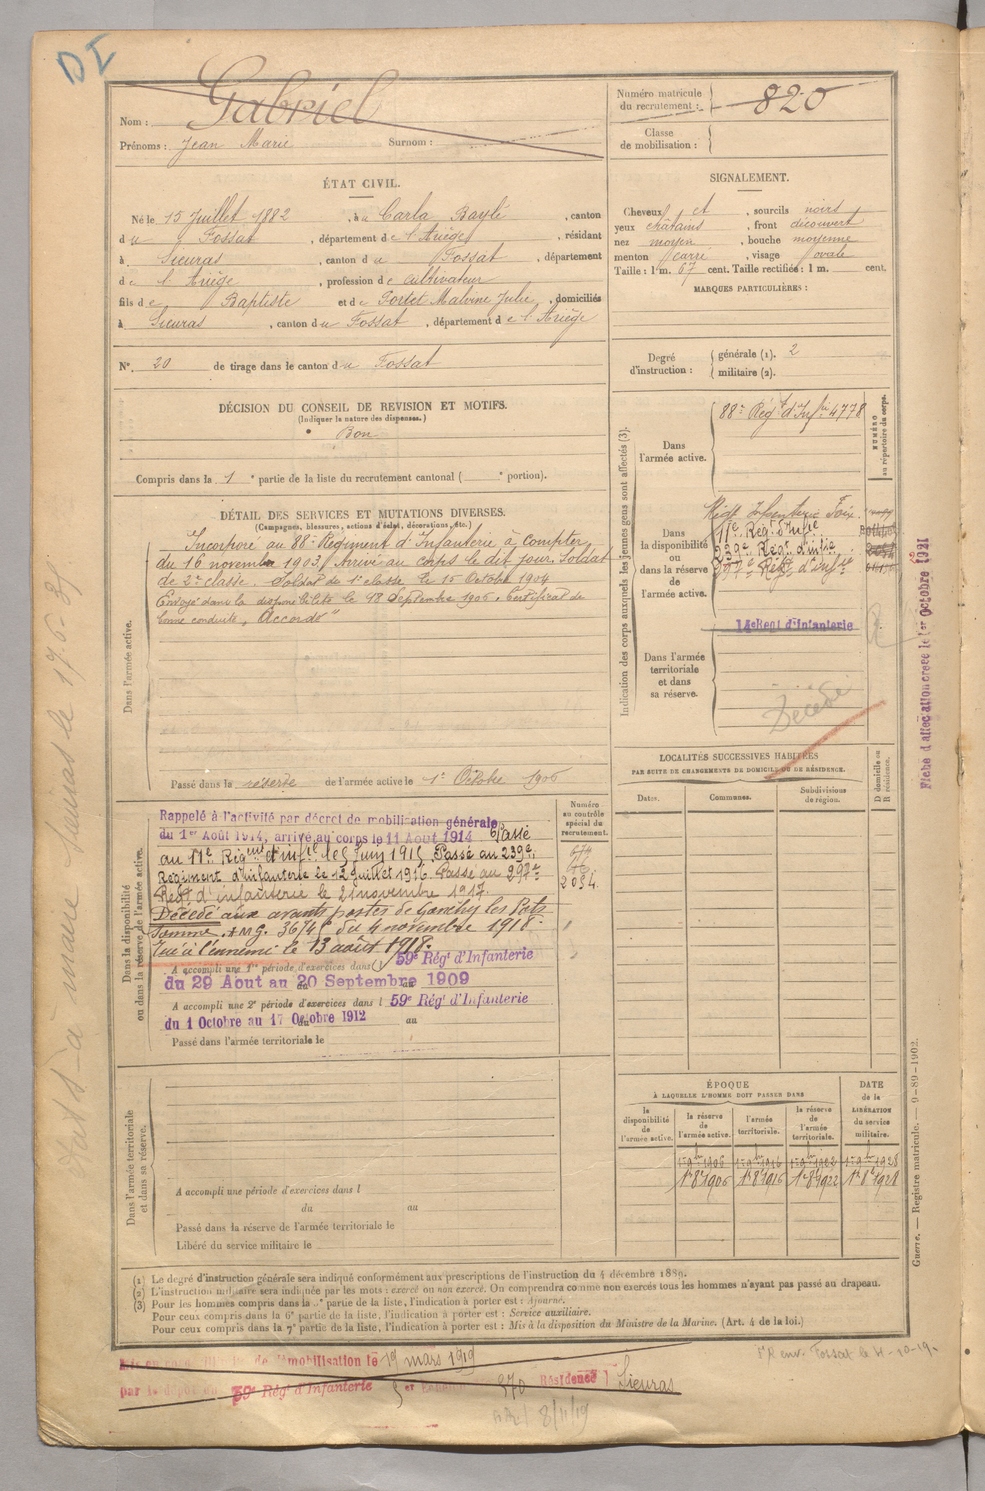 D I
Gabriel
Nom :
Prénoms : Jean Marie Surnom :
Numéro matricule du recrutement : 820
Classe de mobilisation :
ÉTAT CIVIL.
Né le 15 Juillet 1882, à Carla Bayle, canton
du Fossat, département de l'Ariège, résidant
à Sieuras, canton du Fossat, département
de l'Ariège, profession de cultivateur
fils de Baptiste et de Portet Malvine Julie, domiciliés
à Sieuras, canton du Fossat, département de l'Ariège
N°. 20 de tirage dans le canton du Fossat
SIGNALEMENT.
Cheveux et, sourcils noirs
yeux chatains, front découvert
nez moyen, bouche moyenne
menton carré, visage ovale
Taille : 1 m. 67 cent. Taille rectifiée : 1 m. cent.
MARQUES PARTICULIÈRES :
Degré d'instruction : générale (1). 2
militaire (2).
DÉCISION DU CONSEIL DE REVISION ET MOTIFS.
(Indiquer la nature des dispenses.)
Bon
Compris dans la 1e partie de la liste du recrutement cantonal ( e portion).
DÉTAIL DES SERVICES ET MUTATIONS DIVERSES.
(Campagnes, blessures, actions d'éclat, décorations, etc.)
Dans l'armée active.
Incorporé au 88e Régiment d'Infanterie à compter
du 16 novembre 1903. Arrivé au corps le dit jour. Soldat
de 2e classe. Soldat de 1e classe le 15 Octobre 1904
Envoyé dans la disponibilité le 18 Septembre 1906. Certificat de
bonne conduite "Accordé"
Passé dans la réserve de l'armée active le 1er Octobre 1906
Indication des corps auxquels les jeunes gens sont affectés (3).
NUMÉRO au répertoire du corps.
Dans l'armée active.
88e Régt d'Infrie 4778
Dans la disponibilité ou dans la réserve de l'armée active.
Régt Infanterie Foix.
11e Régt d'Infie
239e Régt d'infie
297e Régt d'infie
14e Regt d'Infanterie
Dans l'armée territoriale et dans sa réserve.
Décédé
Fiche d'affectation créée le 1er Octobre 1921
LOCALITÉS SUCCESSIVES HABITÉES
PAR SUITE DE CHANGEMENTS DE DOMICILE OU DE RÉSIDENCE.
Dates.
Communes.
Subdivisions de région.
D domicile ou R résidence.
Dans la disponibilité ou dans la réserve de l'armée active.
Numéro au contrôle spécial du recrutement.
Rappelé à l'activité par décret de mobilisation générale
du 1er Août 1914, arrivé au corps le 11 Août 1914 Passé
au 11e Régiment d'infie le 5 juin 1915 Passé au 239e
Régiment d'infanterie le 12 juillet 1916. Passé au 297e
Régt d'infanterie le 21 novembre 1917.
2034
Décédé aux avants postes de
Somme. A.M.G. du 4 novembre 1918.
Tué à l'ennemi le 13 août 1918.
A accompli une 1re période d'exercices dans l 59e Régt d'Infanterie
du 29 Aout au 20 Septembre 1909
A accompli une 2e période d'exercices dans l 59e Régt d'Infanterie
du 1 Octobre au 17 Octobre 1912 au
Passé dans l'armée territoriale le
Dans l'armée territoriale et dans sa réserve.
A accompli une période d'exercices dans l
du au
Passé dans la réserve de l'armée territoriale le
Libéré du service militaire le
ÉPOQUE
À LAQUELLE L'HOMME DOIT PASSER DANS
DATE de la LIBÉRATION du service militaire.
la disponibilité de l'armée active.
la réserve de l'armée active.
l'armée territoriale.
la réserve de l'armée territoriale.
1er 8e 1906 1er 8e 1916 1er 8e 1922 1er 8e 1928
Guerre. — Registre matricule. — 9-89-1902.
(1) Le degré d'instruction générale sera indiqué conformément aux prescriptions de l'instruction du 4 décembre 1889.
(2) L'instruction militaire sera indiquée par les mots : exercé ou non exercé. On comprendra comme non exercés tous les hommes n'ayant pas passé au drapeau.
(3) Pour les hommes compris dans la 5e partie de la liste, l'indication à porter est : Ajourné.
Pour ceux compris dans la 6e partie de la liste, l'indication à porter est : Service auxiliaire.
Pour ceux compris dans la 7e partie de la liste, l'indication à porter est : Mis à la disposition du Ministre de la Marine. (Art. 4 de la loi.)
Mis en congé de démobilisation le 19 mars 1919
par le dépôt du 59e Régt d'Infanterie Résidence Sieuras
8/11/19